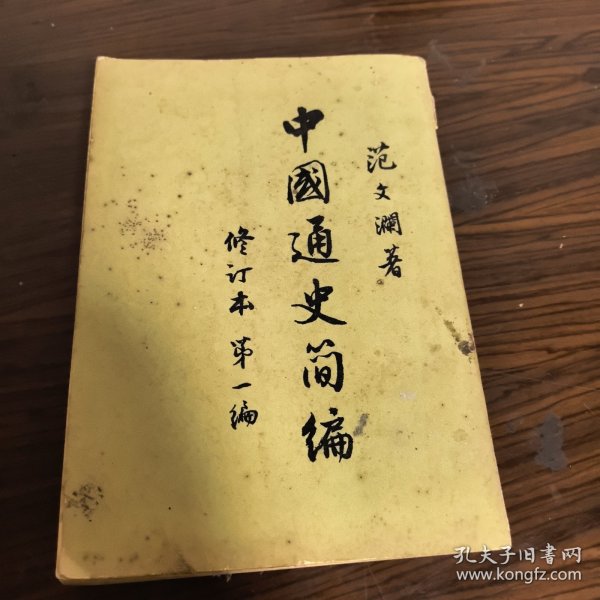 范文瀾著
中國通史简编
修订本 第一编
孔夫子旧书网
www.kongfz.com